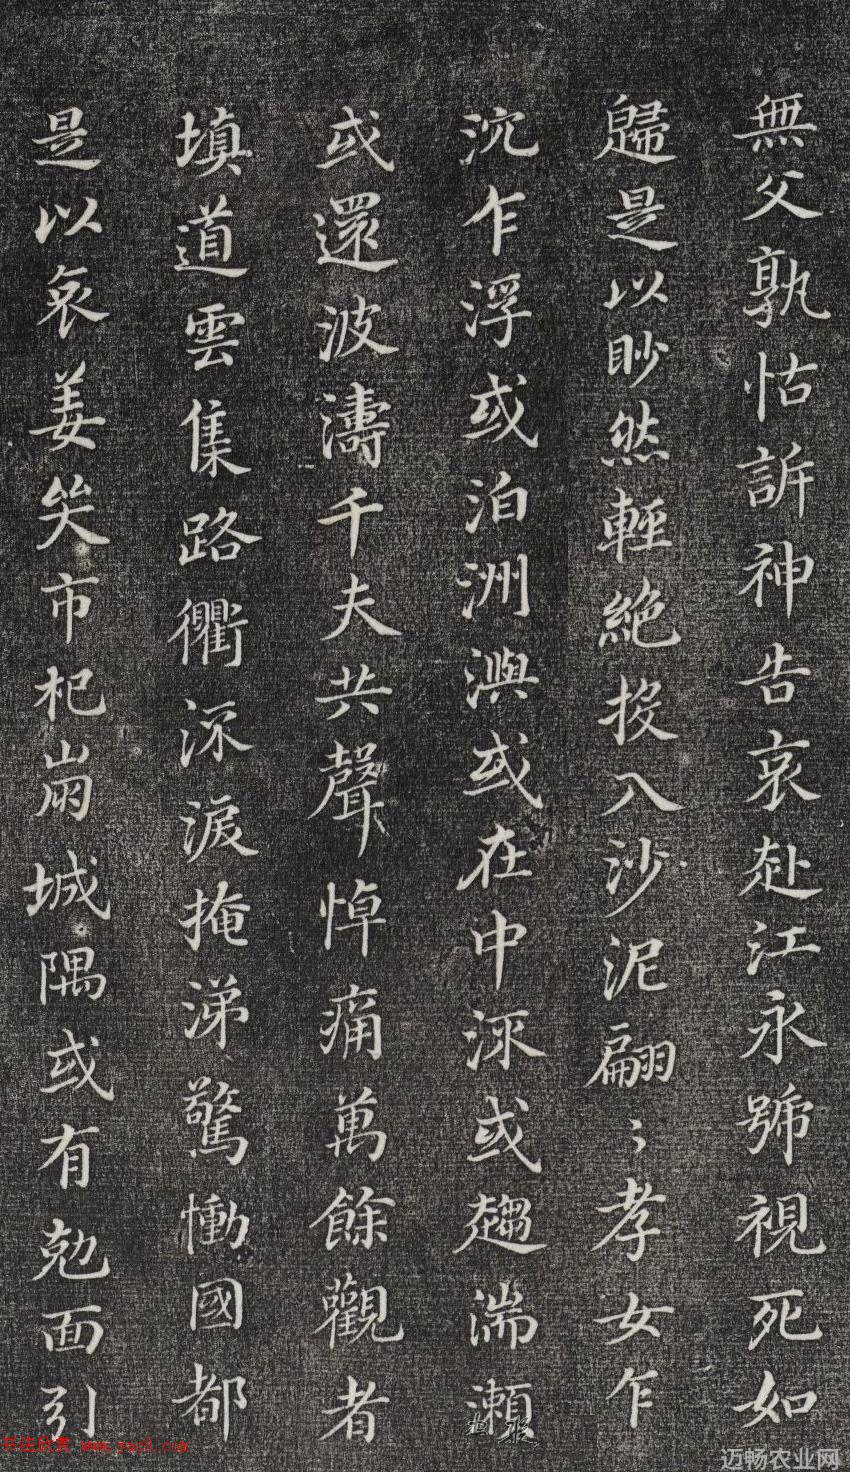 無父孰怙訴神告哀赴江永號視死如
歸是以眇然輕絶投入沙泥翩〻孝女乍
沉乍浮或泊洲嶼或在中流或趨湍瀬
或還波濤千夫共聲悼痛萬餘觀者
填道雲集路衢流淚掩涕驚慟國都
是以哀姜哭市杞崩城隅或有剋面引
书法欣赏 www.yac8.com
迈畅农业网